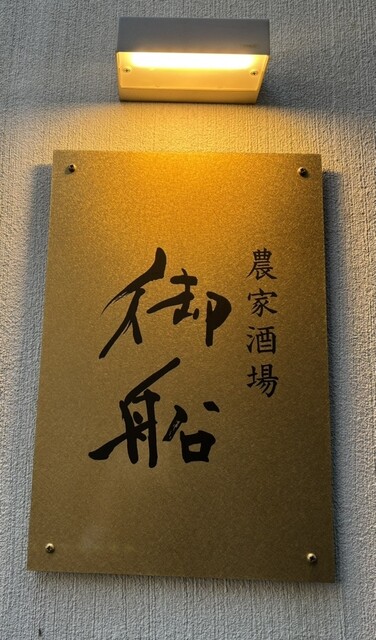 農家酒場
御船